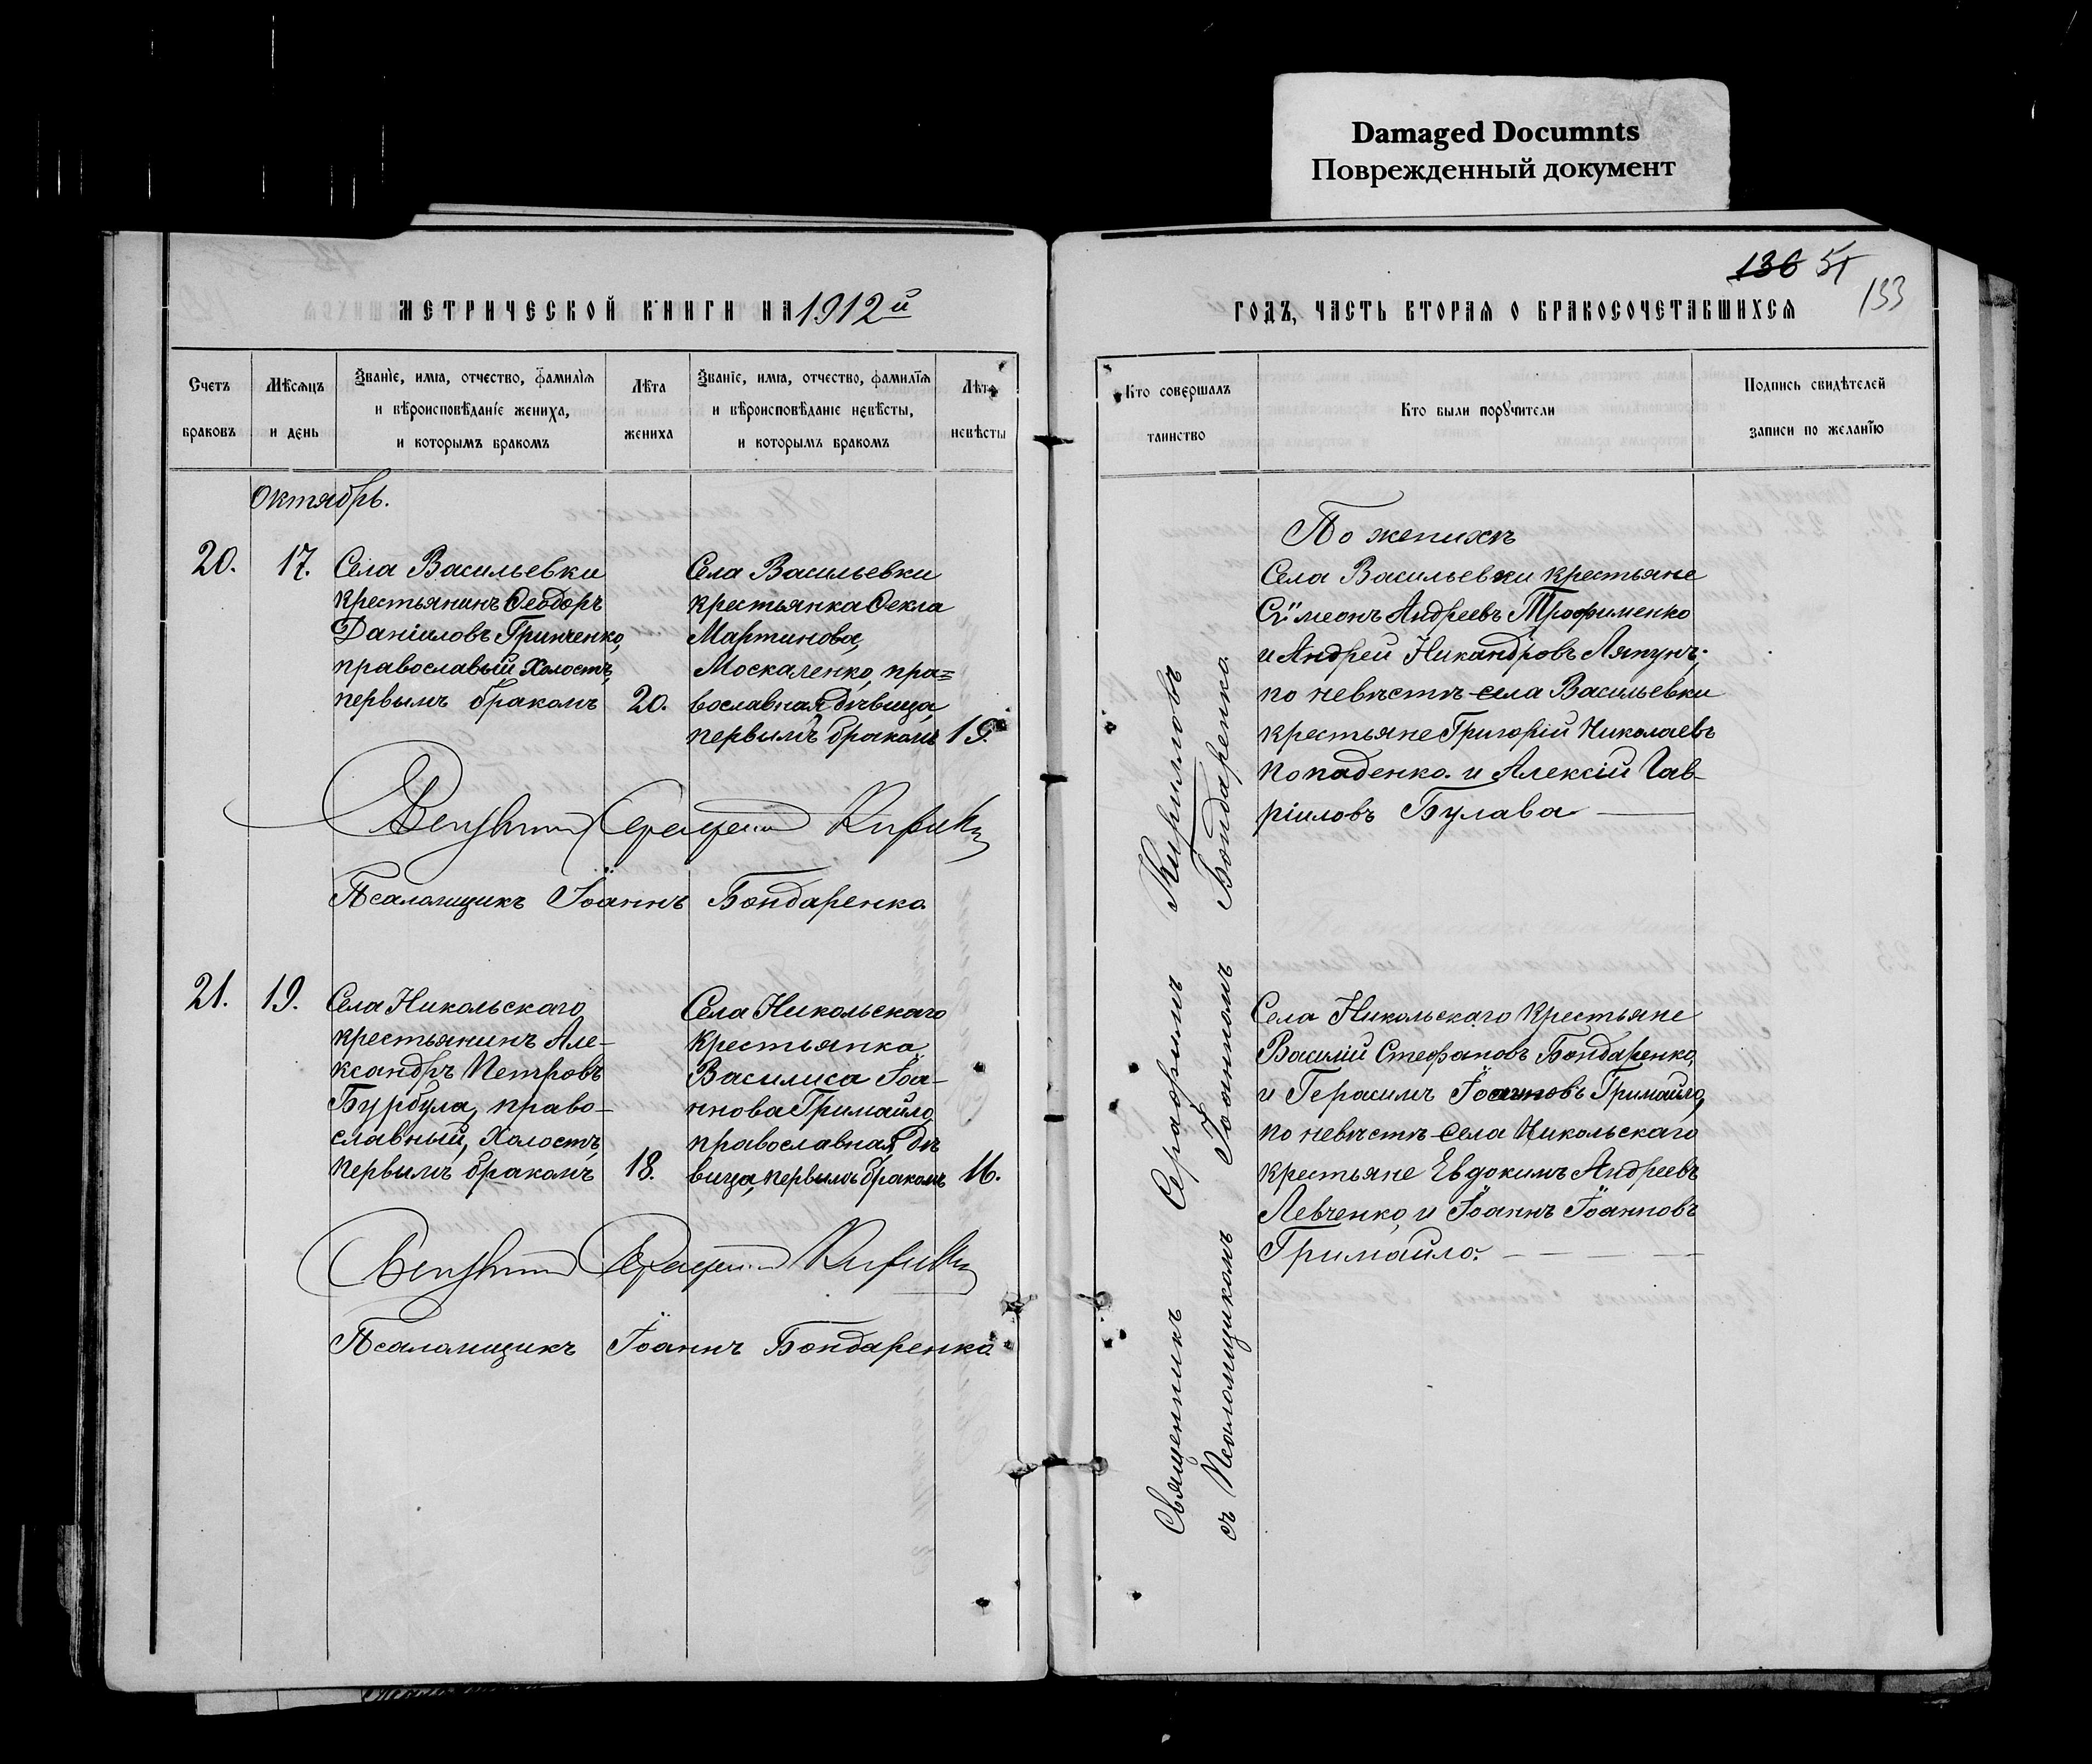 Damaged Documnts
Поврежденный документ
136 51
133
МЕТРИЧЕСКОЙ КНИГИ НА 1912й
ГОДЪ, ЧАСТЬ ВТОРАЯ О БРАКОСОЧЕТАВШИХСЯ
Счетъ
браковъ
Мѣсяцъ
и день
Званіе, имя, отчество, фамилія
и вѣроисповѣданіе жениха,
и которымъ бракомъ
Лѣта
жениха
Званіе, имя, отчество, фамилія
и вѣроисповѣданіе невѣсты,
и которымъ бракомъ
Лѣта
невѣсты
Кто совершалъ
таинство
Кто были поручители
Подпись свидѣтелей
записи по желанію
Октябрь.
20.
17.
Села Васильевки
крестьянинъ Ѳеодоръ
Даніиловъ Гринченко,
православый Холостъ,
первымъ бракомъ
20.
Села Васильевки
крестьянка Ѳекла
Мартинова,
Москаленко, пра=
вославная дѣвица,
первымъ бракомъ
19.
Священникъ Серафимъ Кириловъ
съ Псаломщикомъ Іоанномъ Бондаренко
По женихѣ
Села Васильевки крестьяне
Сѵмеонъ Андреевъ Трофименко
и Андрей Никандровъ Ляпунъ;
по невѣстѣ села Васильевки
крестьяне Григорій Николаевъ
Попаденко и Алексій Гав-
ріиловъ Булава
Священникъ Серафимъ Кириловъ
Псаломщикъ Іоаннъ Бондаренко
21.
19.
Села Никольскаго
крестьянинъ Але-
ксандръ Петровъ
Бурбула, право-
славный, Холостъ,
первымъ бракомъ
18.
Села Никольскаго
крестьянка
Василиса Іоа-
ннова Гримайло,
православная, дѣ
вица, первымъ бракомъ
16.
Села Никольскаго Крестьяне
Василій Стефановъ Бондаренко,
и Герасимъ Іоанновъ Гримайло,
по невѣстѣ села Никольскаго
крестьяне Евдокимъ Андреевъ
Левченко, и Іоаннъ Іоанновъ
Гримайло.
Священникъ Серафимъ Кириловъ
Псаломщикъ Іоаннъ Бондаренко